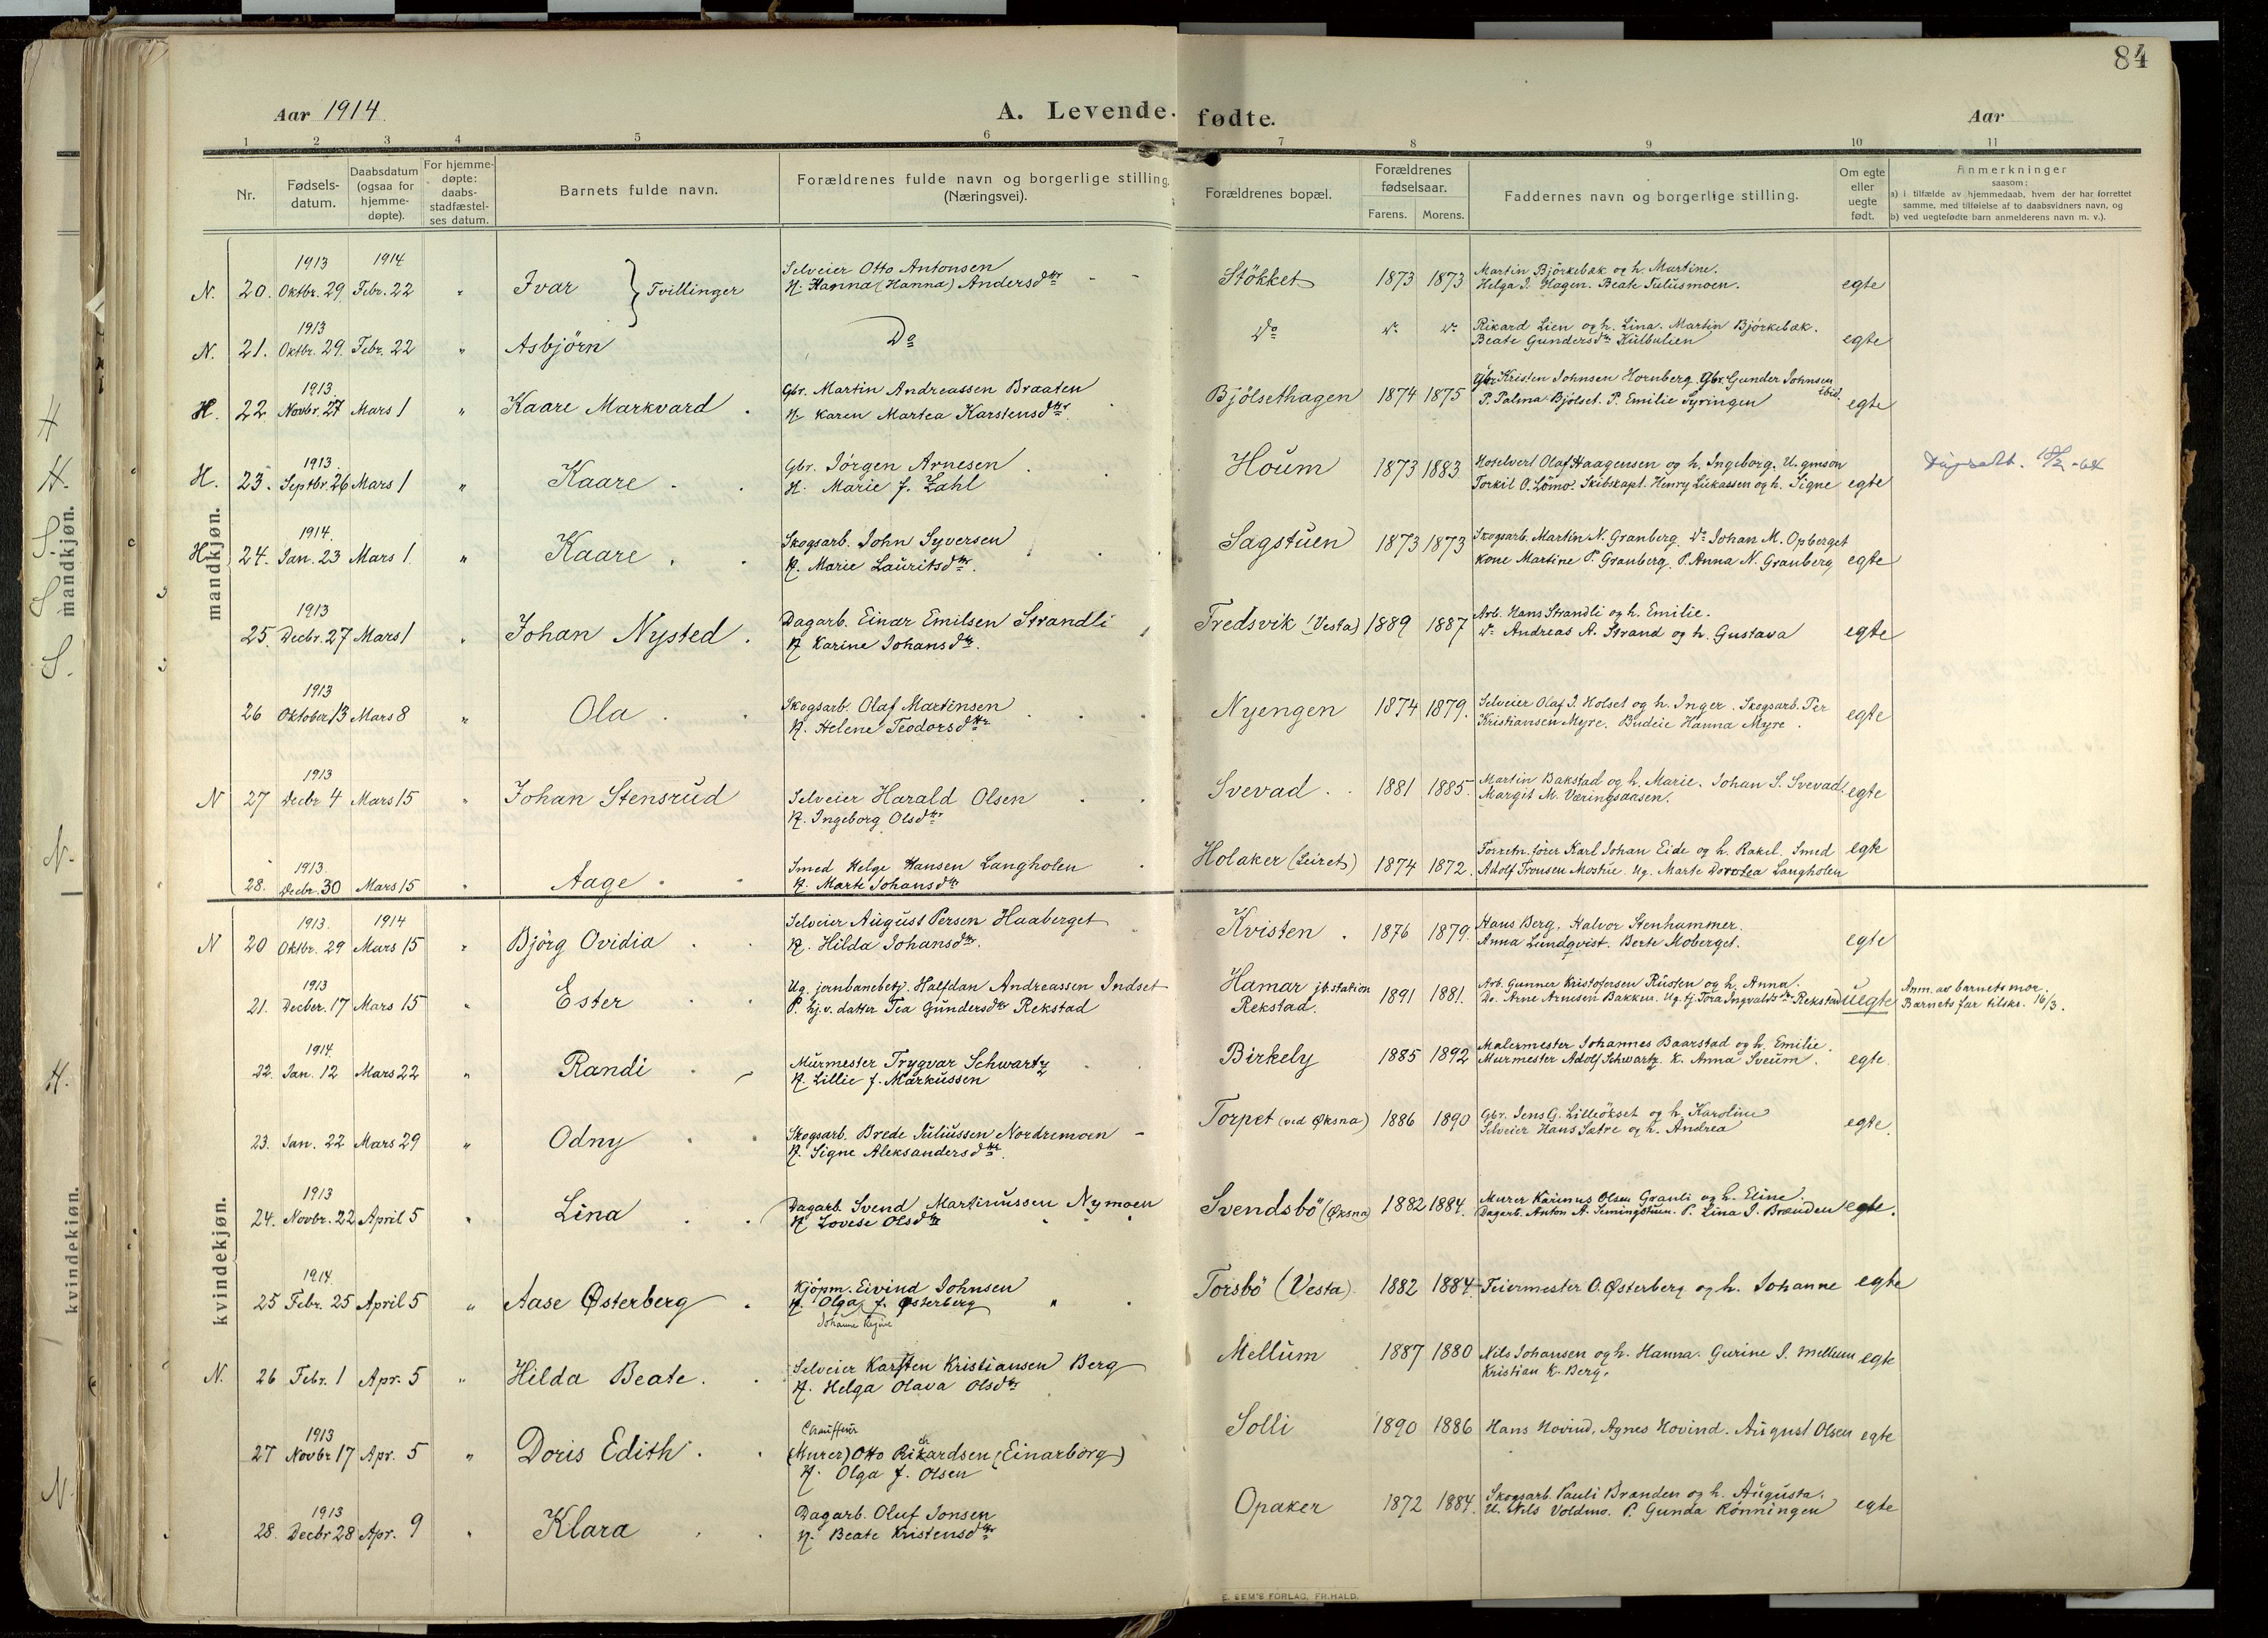 84
Aar 1914.
A. Levende. fødte.
Aar
1 2 3 4 5 6 7 8 9 10 11
Nr.
Fødsels-
datum.
Daabsdatum
(ogsaa for
hjemme-
døpte).
For hjemme-
døpte:
daabs-
stadfæstel-
ses datum.
Barnets fulde navn.
Forældrenes fulde navn og borgerlige stilling
(Næringsvei).
Forældrenes bopæl.
Forældrenes
fødselsaar.
Farens. Morens.
Faddernes navn og borgerlige stilling.
Om egte
eller
uegte
født.
Anmerkninger
saasom:
a) i tilfælde av hjemmedaab, hvem der har forrettet
samme, med tilføielse af to daabsvidners navn, og
b) ved uegtefødte barn anmelderens navn m. v.).
mandkjøn.
1913 1914
N. 20. Oktbr. 29 Febr. 22 " Ivar } Tvillinger
Selveier Otto Antonsen
H. Hanna (Hanna) Andersdtr
Stökket 1873 1873
Martin Björkebæk og h. Martine.
Helga I. Hagen. Beate Juliusmoen.
egte
1913
N. 21. Oktbr. 29. Febr. 22 " Asbjörn
Do
Do Do Do
Rikard Lien og h. Lina. Martin Björkebæk.
Beate Gundersdtr Kulbulien
egte
1913.
H. 22 Novbr. 27 Mars 1 " Kaare Markvard
Gbr. Martin Andreassen Braaten
H. Karen Martea Karstensdtr
Bjölsethagen 1874 1875
Gbr. Kristen Johnsen Hornberg. Gbr. Gunder Johnsen ibid.
P. Palma Bjölset. P. Emilie Syringen
egte
1913.
H. 23. Septbr. 26 Mars 1 " Kaare
Gbr. Jörgen Arnesen
H. Marie f. Zahl
Houm 1873 1883
Hotelvert Olaf Haagensen og h. Ingeborg. U. gmson
Torkil O. Lömo. Skibskapt. Henry Lukassen og h. Signe
egte
1914.
H. 24. Jan. 23 Mars 1. " Kaare
Skogsarb. John Syversen
H. Marie Lauritsdtr.
Sagstuen 1873 1873
Skogsarb. Martin N. Granberg. Do Johan M. Opberget
Kone Martine P. Granberg. P. Anna N. Granberg
egte
1913
25. Decbr. 27 Mars 1 " Johan Nysted
Dagarb. Einar Emilsen Strandli
H. Karine Johansdtr.
Fredsvik (Vesta) 1889 1887
Arb. Hans Strandli og h. Emilie.
Do Andreas A. Strand og h. Gustava
egte
1913
26 Oktober 13 Mars 8 " Ola
Skogsarb. Olaf Martinsen
H. Helene Teodorsdtr
Nyengen 1874 1879.
Selveier Olaf I. Holset og h. Inger. Skogsarb. Per
Kristiansen Myre. Budeie Hanna Myre.
egte
1913
N 27 Decbr 4 Mars 15 " Johan Stensrud
Selveier Harald Olsen
H. Ingeborg Olsdtr
Svevad 1881 1885.
Martin Bakstad og h. Marie. Johan S. Svevad.
Margit M. Væringsaasen.
egte
1913.
28. Decbr. 30 Mars 15 " Aage
Smed Helge Hansen Langholen
H. Marte Johansdtr
Holaker (Leiret) 1874 1872.
Forretn.fører Karl Johan Eide og h. Rakel. Smed
Adolf Tronsen Moshue. Ug. Marte Dorotea Langholen
egte
kvindekjøn.
1913. 1914
N 20 Oktbr. 29 Mars 15 " Björg Ovidia
Selveier August Persen Haaberget
H. Hilda Johansdtr.
Kvisten 1876 1879.
Hans Berg. Halvor Stenhammer.
Anna Lundqvist. Berte Moberget.
egte
1913
21. Decber. 17 Mars 15 " Ester
Ug. jernbanebetj. Halfdan Andreassen Indset
P. hj.v. datter Tea Gundersdtr Rekstad
Hamar jb. station
Rekstad.
1891 1881.
Arb. Gunner Kristofersen Rusten og h. Anna.
Do. Arne Arnesen Bakken. Ug. tj. Tora Ingvaldsdtr Rekstad
uegte
Anm. av barnets mor.
Barnets far tilskr. 16/3.
1914.
22. Jan. 12 Mars 22 " Randi
Murmester Trygvar Schwartz
H. Lillie f. Markussen
Birkely 1885 1892
Malermester Johannes Baarstad og h. Emilie.
Murmester Adolf Schwartz. K. Anna Sveum.
egte.
23. Jan. 22 Mars 29 " Odny
Skogsarb. Brede Juliussen Nordremoen
H. Signe Aleksandersdtr.
Torpet (ved Øksna) 1886 1890
Gbr. Jens G. Lilleökset og h. Karoline
Selveier Hans Sætre og h. Andrea
egte.
1913
24. Novbr. 22 April 5 " Lina
Dagarb. Svend Martinussen Nymoen
H. Lovise Olsdtr
Svendsbö (Øksna) 1882 1884.
Murer Karinus Olsen Granli og h. Eline.
Dagarb. Anton A. Semingstuen. P. Lina J. Brænden
egte.
1914.
25 Febr. 25 April 5 " Aase Østerberg
Kjöpm. Eivind Johnsen
H. Olga f. Østerberg
Johanne Regine
Torsbö (Vesta) 1882 1884
Feiermester O. Østerberg og h. Johanne
egte
N. 26 Febr. 1 Apr. 5 " Hilda Beate.
Selveier Karsten Kristiansen Berg
H. Helga Olava Olsdtr
Mellum 1887 1880
Nils Johansen og h. Hanna. Gurine I. Mellum
Kristian K. Berg.
egte
1913
27 Novbr 17 Apr. 5 " Doris Edith
Chauffeur
(Murer) Otto Rikardsen (Einarborg)
H. Olga f. Olsen
Solli 1890 1886
Hans Hovind, Agnes Hovind. August Olsen
egte
1913
28. Decbr 28 Apr. 9 " Klara
Dagarb. Oluf Jonsen
H. Beate Kristensdtr
Opaker 1872 1884.
Skogsarb. Pauli Brænden og h. Augusta.
U. Nils Voldmo. P. Gunda Rönningen
egte
E. SEM'S FORLAG, FR.HALD.
H
H.
mandkjøn.
S
S
S.
N.
H.
kvindekjøn.
N.